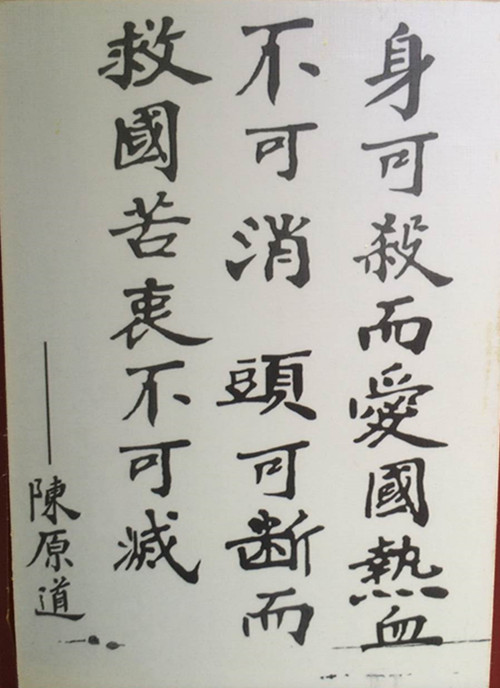 身可殺而愛國熱血
不可消　頭可断而
救國苦衷不可滅
——陳原道